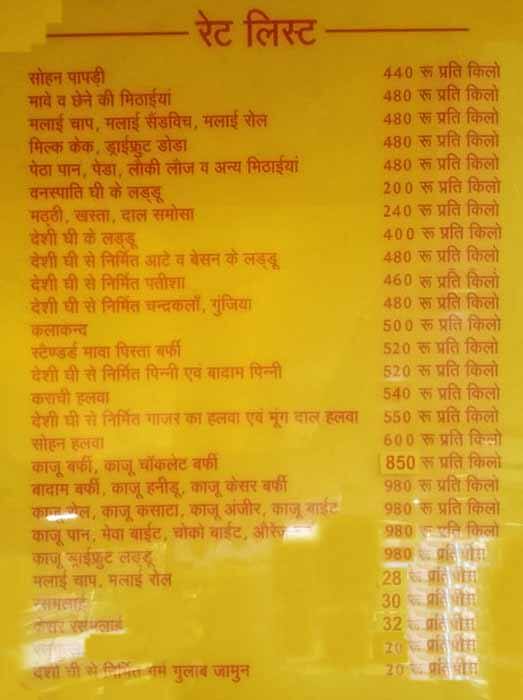 रेट लिस्ट
सोहन पापड़ी 440 रू प्रति किलो
मावे व छेने की मिठाईयां 480 रू प्रति किलो
मलाई चाप, मलाई सैंडविच, मलाई रोल 480 रू प्रति किलो
मिल्क केक, ड्राईफ्रुट डोडा 480 रू प्रति किलो
पेठा पान, पेडा, लौकी लौज व अन्य मिठाईयां 480 रू प्रति किलो
वनस्पाति घी के लड्डू 200 रू प्रति किलो
मठ्ठी, खस्ता, दाल समोसा 240 रू प्रति किलो
देशी घी के लड्डू 400 रू प्रति किलो
देशी घी से निर्मित आटे व बेसन के लड्डू 480 रू प्रति किलो
देशी घी से निर्मित पतीशा 460 रू प्रति किलो
देशी घी से निर्मित चन्द्रकलाँ, गुंजिया 480 रू प्रति किलो
कलाकन्द 500 रू प्रति किलो
स्टैण्डर्ड मावा पिस्ता बर्फी 520 रू प्रति किलो
देशी घी से निर्मित पिन्नी एवं बादाम पिन्नी 520 रू प्रति किलो
कराची हलवा 540 रू प्रति किलो
देशी घी से निर्मित गाजर का हलवा एवं मूंग दाल हलवा 550 रू प्रति किलो
सोहन हलवा 600 रू प्रति किलो
काजू बर्फी, काजू चॉकलेट बर्फी 850 रू प्रति किलो
बादाम बर्फी, काजू हनीडू, काजू केसर बर्फी 980 रू प्रति किलो
काजू रोल, काजू कसाटा, काजू अंजीर, काजू बाईट 980 रू प्रति किलो
काजू पान, मेवा बाईट, चोको बाईट, 980 रू प्रति किलो
काजू ड्राईफ्रुट लड्डू 980 रू प्रति
मलाई चाप, मलाई रोल 28 रू प्रति पीस
रसमलाई 30 रू प्रति पीस
केसर रसमलाई 32 रू प्रति पीस
20 रू प्रति पीस
देशी घी से निर्मित गर्म गुलाब जामुन 20 रू प्रति पीस